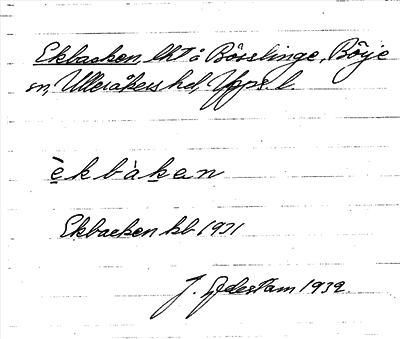 Ekbacken, lht å Bösslinge, Börje
sn, Ulleråkers hd, Upps. l.
èkbàken
Ekbacken kb 1931
J. Edestam 1939.